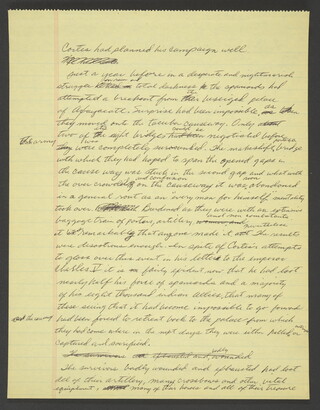 Cortes had planned his campaign well
Just a year before in a desperate and nightmarish
struggle in total darkness the spaniards had
attempted a breakout from the beseiged palace
of Axayacatl. Surprise had been impossible as
they moved out the Tacuba causeway. Only
two of the eight bridges could be negotiated before
the army was completely surrounded. The makeshift bridge
with which they had hoped to span the opened gaps in
the causeway was stuck in the second gap and what with
the over crowding and confusion on the causeway it was abandoned
in a general rout as in every man for himself mentality
took over. Burdened as they were with a
baggage train of porters, artillery and non combatants
it is remarkable that anyone made it out. The results
was disastrous enough. In spite of Cortes's attempts
to gloss over this event in his letters to the emperor
Charles V it is fairly evident now that he had lost
nearly half his force of spaniards and a majority
of his eight thousand indian allies, that many of
those seeing that it had become impossible to go forward
and the army had been forced to retreat back to the palace from which
they had come where in the next days they were either killed or
captured and sacrificed.
The survivors badly wounded and exhausted had lost
all of their artillery, many crossbows and other vital
equipment many of their horses and all of their treasure